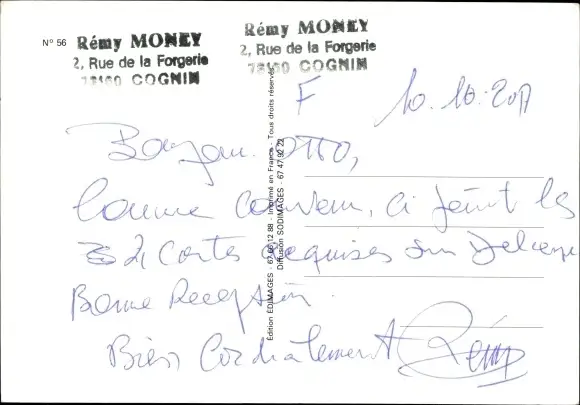 N° 56
Rémy MONEY
2, Rue de la Forgerie
73160 COGNIN
Rémy MONEY
2, Rue de la Forgerie
73160 COGNIN
F 10.10.2011
Bonjour OTTO,
Comme convenu, ci joint les
2 Cartes acquises sur Delcampe
Bonne Reception.
Bien Cordialement Rémy
Édition EDIMAGES - 67 66 12 88 - Imprimé en France - Tous droits réservés
Diffusion SODIMAGES - 67 47 92 22